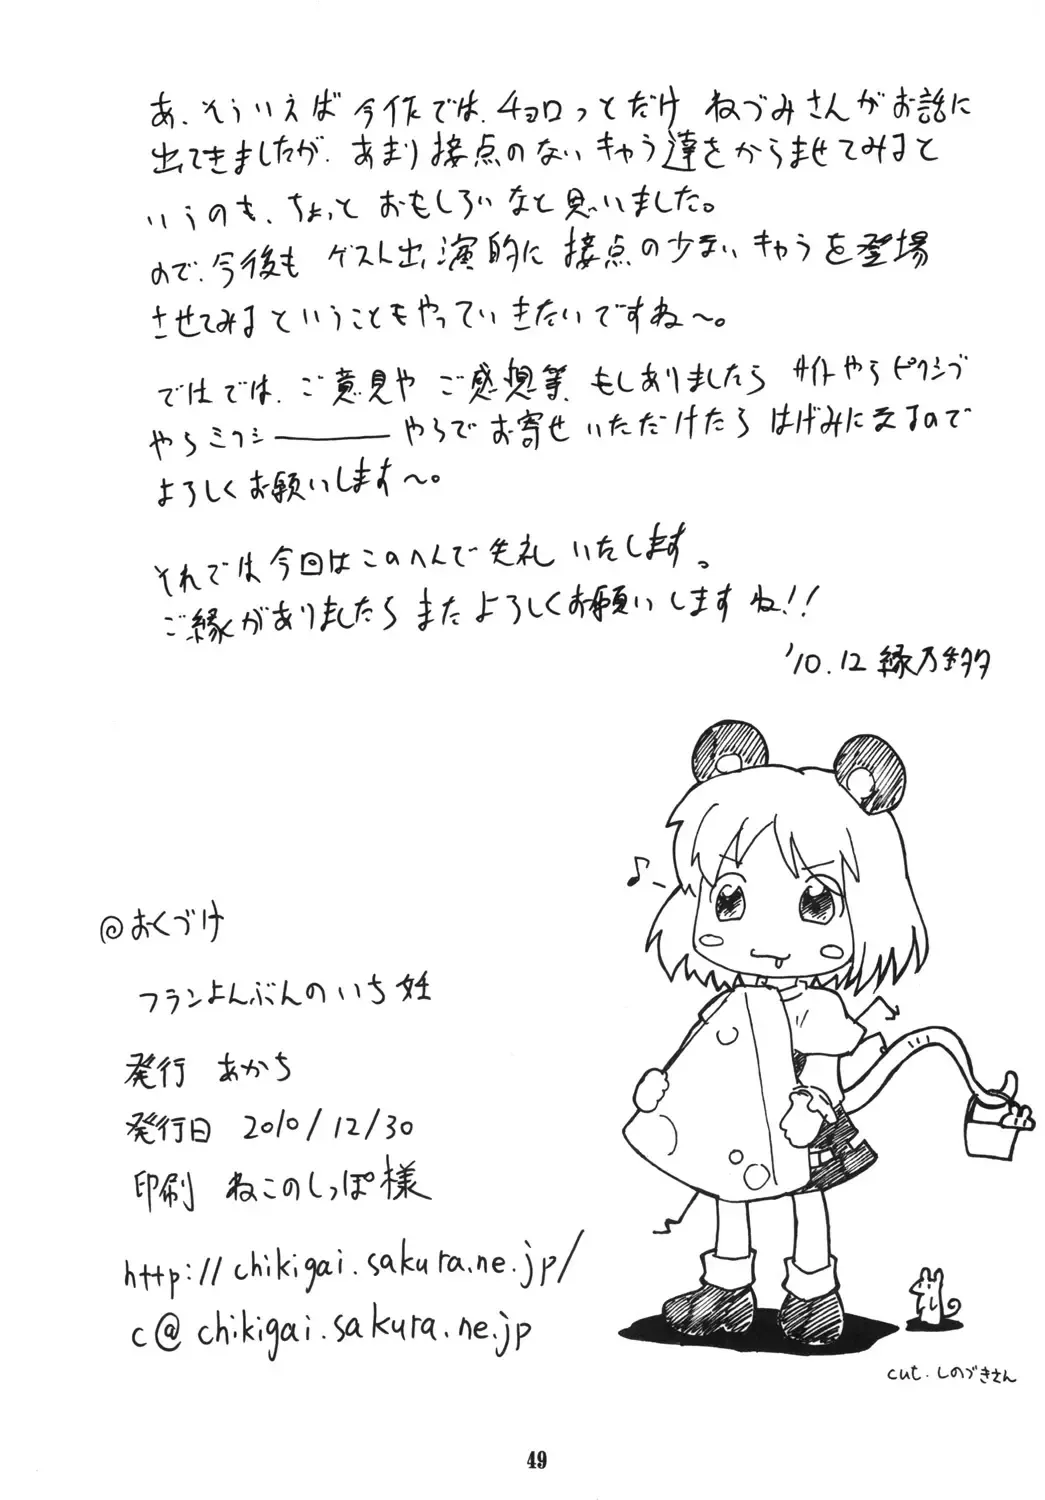 あ、そういえば今作では、チョロっとだけ ねづみさんがお話に
出てきましたが、あまり接点のないキャラ達をからませてみると
いうのも、ちょっと おもしろいなと思いました。
ので、今後も ゲスト出演的に 接点の少ないキャラを登場
させてみる ということもやっていきたいですね〜。
ではでは、ご意見や ご感想等、もしありましたら サイトやらピクシブ
やらミクシ―――やらでお寄せいただけたら はげみになるので
よろしくお願いします〜。
それでは今回はこのへんで失礼 いたします。
ご縁がありましたら またよろしくお願いしますね!!
'10.12 縁乃
♪
@おくづけ
フランよんぶんのいち妊
発行 あかち
発行日 2010/12/30
印刷 ねこのしっぽ様
http://chikigai.sakura.ne.jp/
c@chikigai.sakura.ne.jp
cut. しのづきさん
49